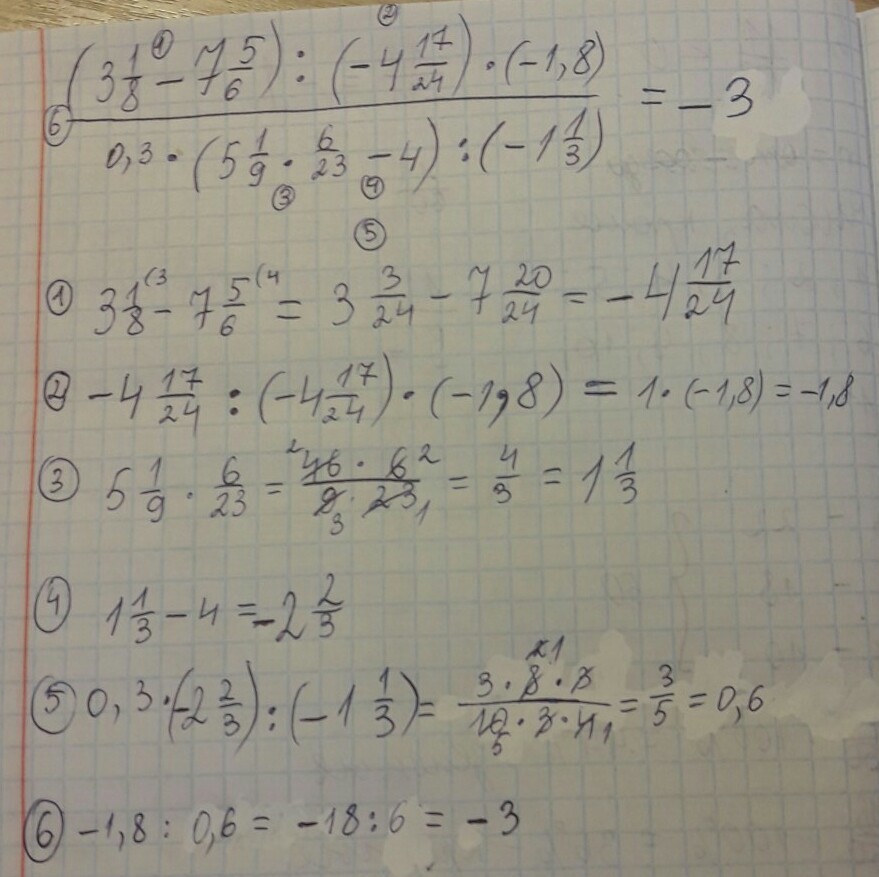 ② 
① (3 1/8 − 7 5/6) : (−4 17/24) · (−1,8)
⑥ ———————————— = −3
0,3 · (5 1/9 · 6/23 − 4) : (−1 1/3)
③ ④
⑤
① 3 1/8 (3 − 7 5/6 (4 = 3 3/24 − 7 20/24 = −4 17/24
② −4 17/24 : (−4 17/24) · (−1,8) = 1 · (−1,8) = −1,8
③ 5 1/9 · 6/23 = 2 46 · 6 2 / 9 3 · 23 1 = 4/3 = 1 1/3
④ 1 1/3 − 4 = −2 2/3
⑤ 0,3 · (−2 2/3) : (−1 1/3) = 3 · 8 · 3 / 10 5 · 3 · 4 1 = 3/5 = 0,6
⑥ −1,8 : 0,6 = −18 : 6 = −3